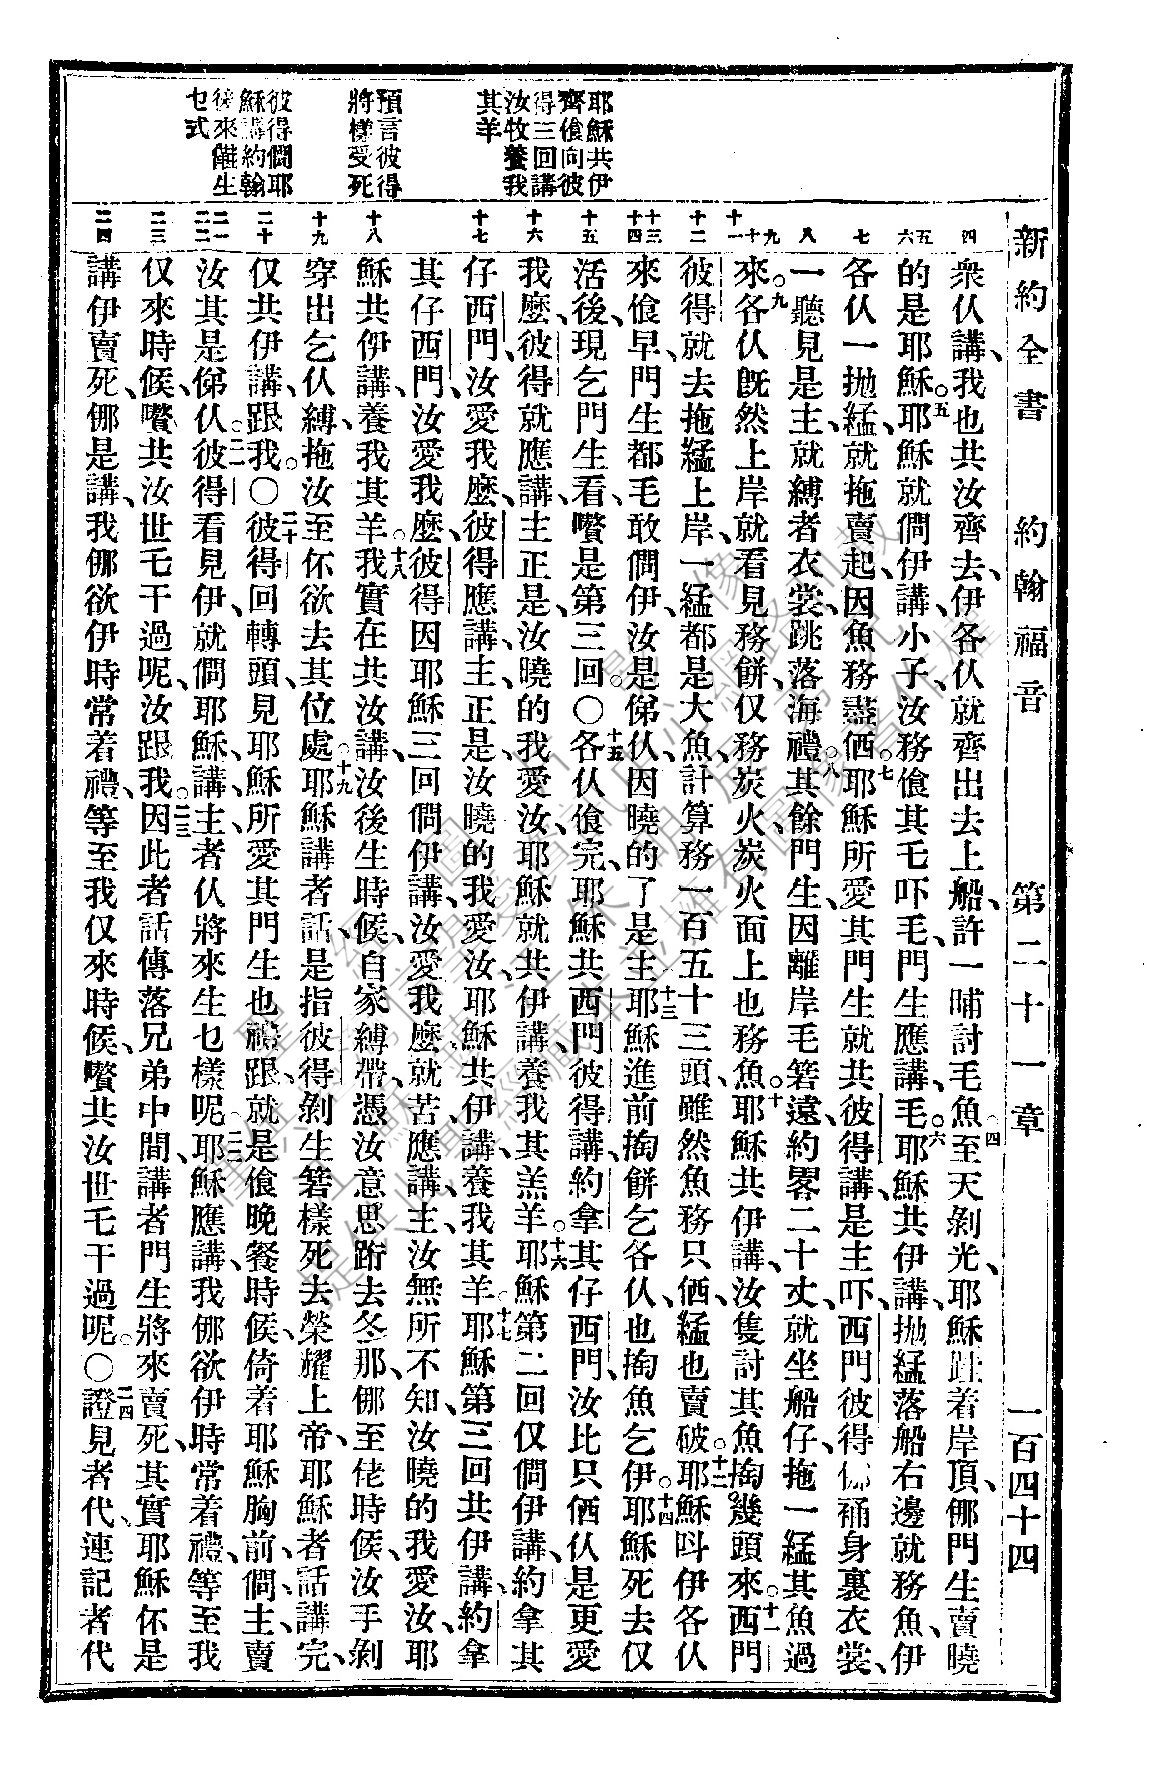 新約全書 約翰福音 第二十一章 一百四十四
耶穌共伊
齊飡向彼
得三回講
汝牧養我
其羊
預言彼得
將樣受死
彼得僴耶
穌講約翰
後來生
乜式
四 五 六 七 八 九 十 十一 十二 十三 十四 十五 十六 十七 十八 十九 二十 二一 二二 二三 二四
衆仈講、我也共汝齊去、伊各仈就齊出去上船、許一晡討毛魚。四至天剝光、耶穌跓着岸頂、㑚門生賣曉
的是耶穌。五耶穌就僴伊講、小子、汝務飡其毛吓毛、門生應講、毛。六耶穌共伊講、抛䋄落船右邊就務魚、伊
各仈一抛䋄、就拖賣起、因魚務盡価。七耶穌所愛其門生就共彼得講、是主吓、西門彼得身裏衣裳、
一聽見是主、就縛者衣裳、跳落海禮。八其餘門生、因離岸毛箬遠、約畧二十丈、就坐船仔、拖一䋄其魚過
來。九各仈旣然上岸、就看見務餅、仅務炭火、炭火面上也務魚。十耶穌共伊講、汝隻討其魚、掏幾頭來。十一西門
彼得就去拖䋄上岸、一䋄都是大魚、計算務一百五十三頭、雖然魚務只価、䋄也賣破。十二耶穌呌伊各仈
來飡早、門生都毛敢僴伊、汝是㑋仈、因曉的了是主。十三耶穌進前掏餅乞各仈、也掏魚乞伊。十四耶穌死去仅
活後、現乞門生看、嚽是第三回。〇十五各仈飡完、耶穌共西門彼得講、約拿其仔西門、汝比只価仈是更愛
我麽、彼得就應講、主正是、汝曉的我愛汝、耶穌就共伊講、養我其羔羊。十六耶穌第二回仅僴伊講、約拿其
仔西門、汝愛我麽、彼得應講、主正是、汝曉的我愛汝、耶穌共伊講、養我其羊。十七耶穌第三回共伊講、約拿
其仔西門、汝愛我麽、彼得因耶穌三回僴伊講、汝愛我麽、就苦、應講、主、汝無所不知、汝曉的我愛汝、耶
穌共伊講、養我其羊。十八我實在共汝講、汝後生時候、自家縛帶、憑汝意思跒去冬那、㑚至佬時候、汝手剝
穿出、乞仈縛、拖汝至伓欲去其位處。十九耶穌講者話、是指彼得剝生箬樣死去榮耀上帝、耶穌者話講完、
仅共伊講、跟我。〇二十彼得回轉頭、見耶穌所愛其門生也禮跟、就是飡晚餐時候、倚着耶穌胸前、僴主、賣
汝其是㑋仈。二一彼得看見伊、就僴耶穌講、主、者仈將來生乜樣呢。二二耶穌應講、我㑚欲伊時常着禮、等至我
仅來時候、嚽共汝世乇干過呢、汝跟我。二三因此者話傳落兄弟中間、講者門生將來賣死、其實耶穌伓是
講伊賣死、㑚是講、我㑚欲伊時常着禮、等至我仅來時候、嚽共汝世乇干過呢。〇二四證見者代、連記者代